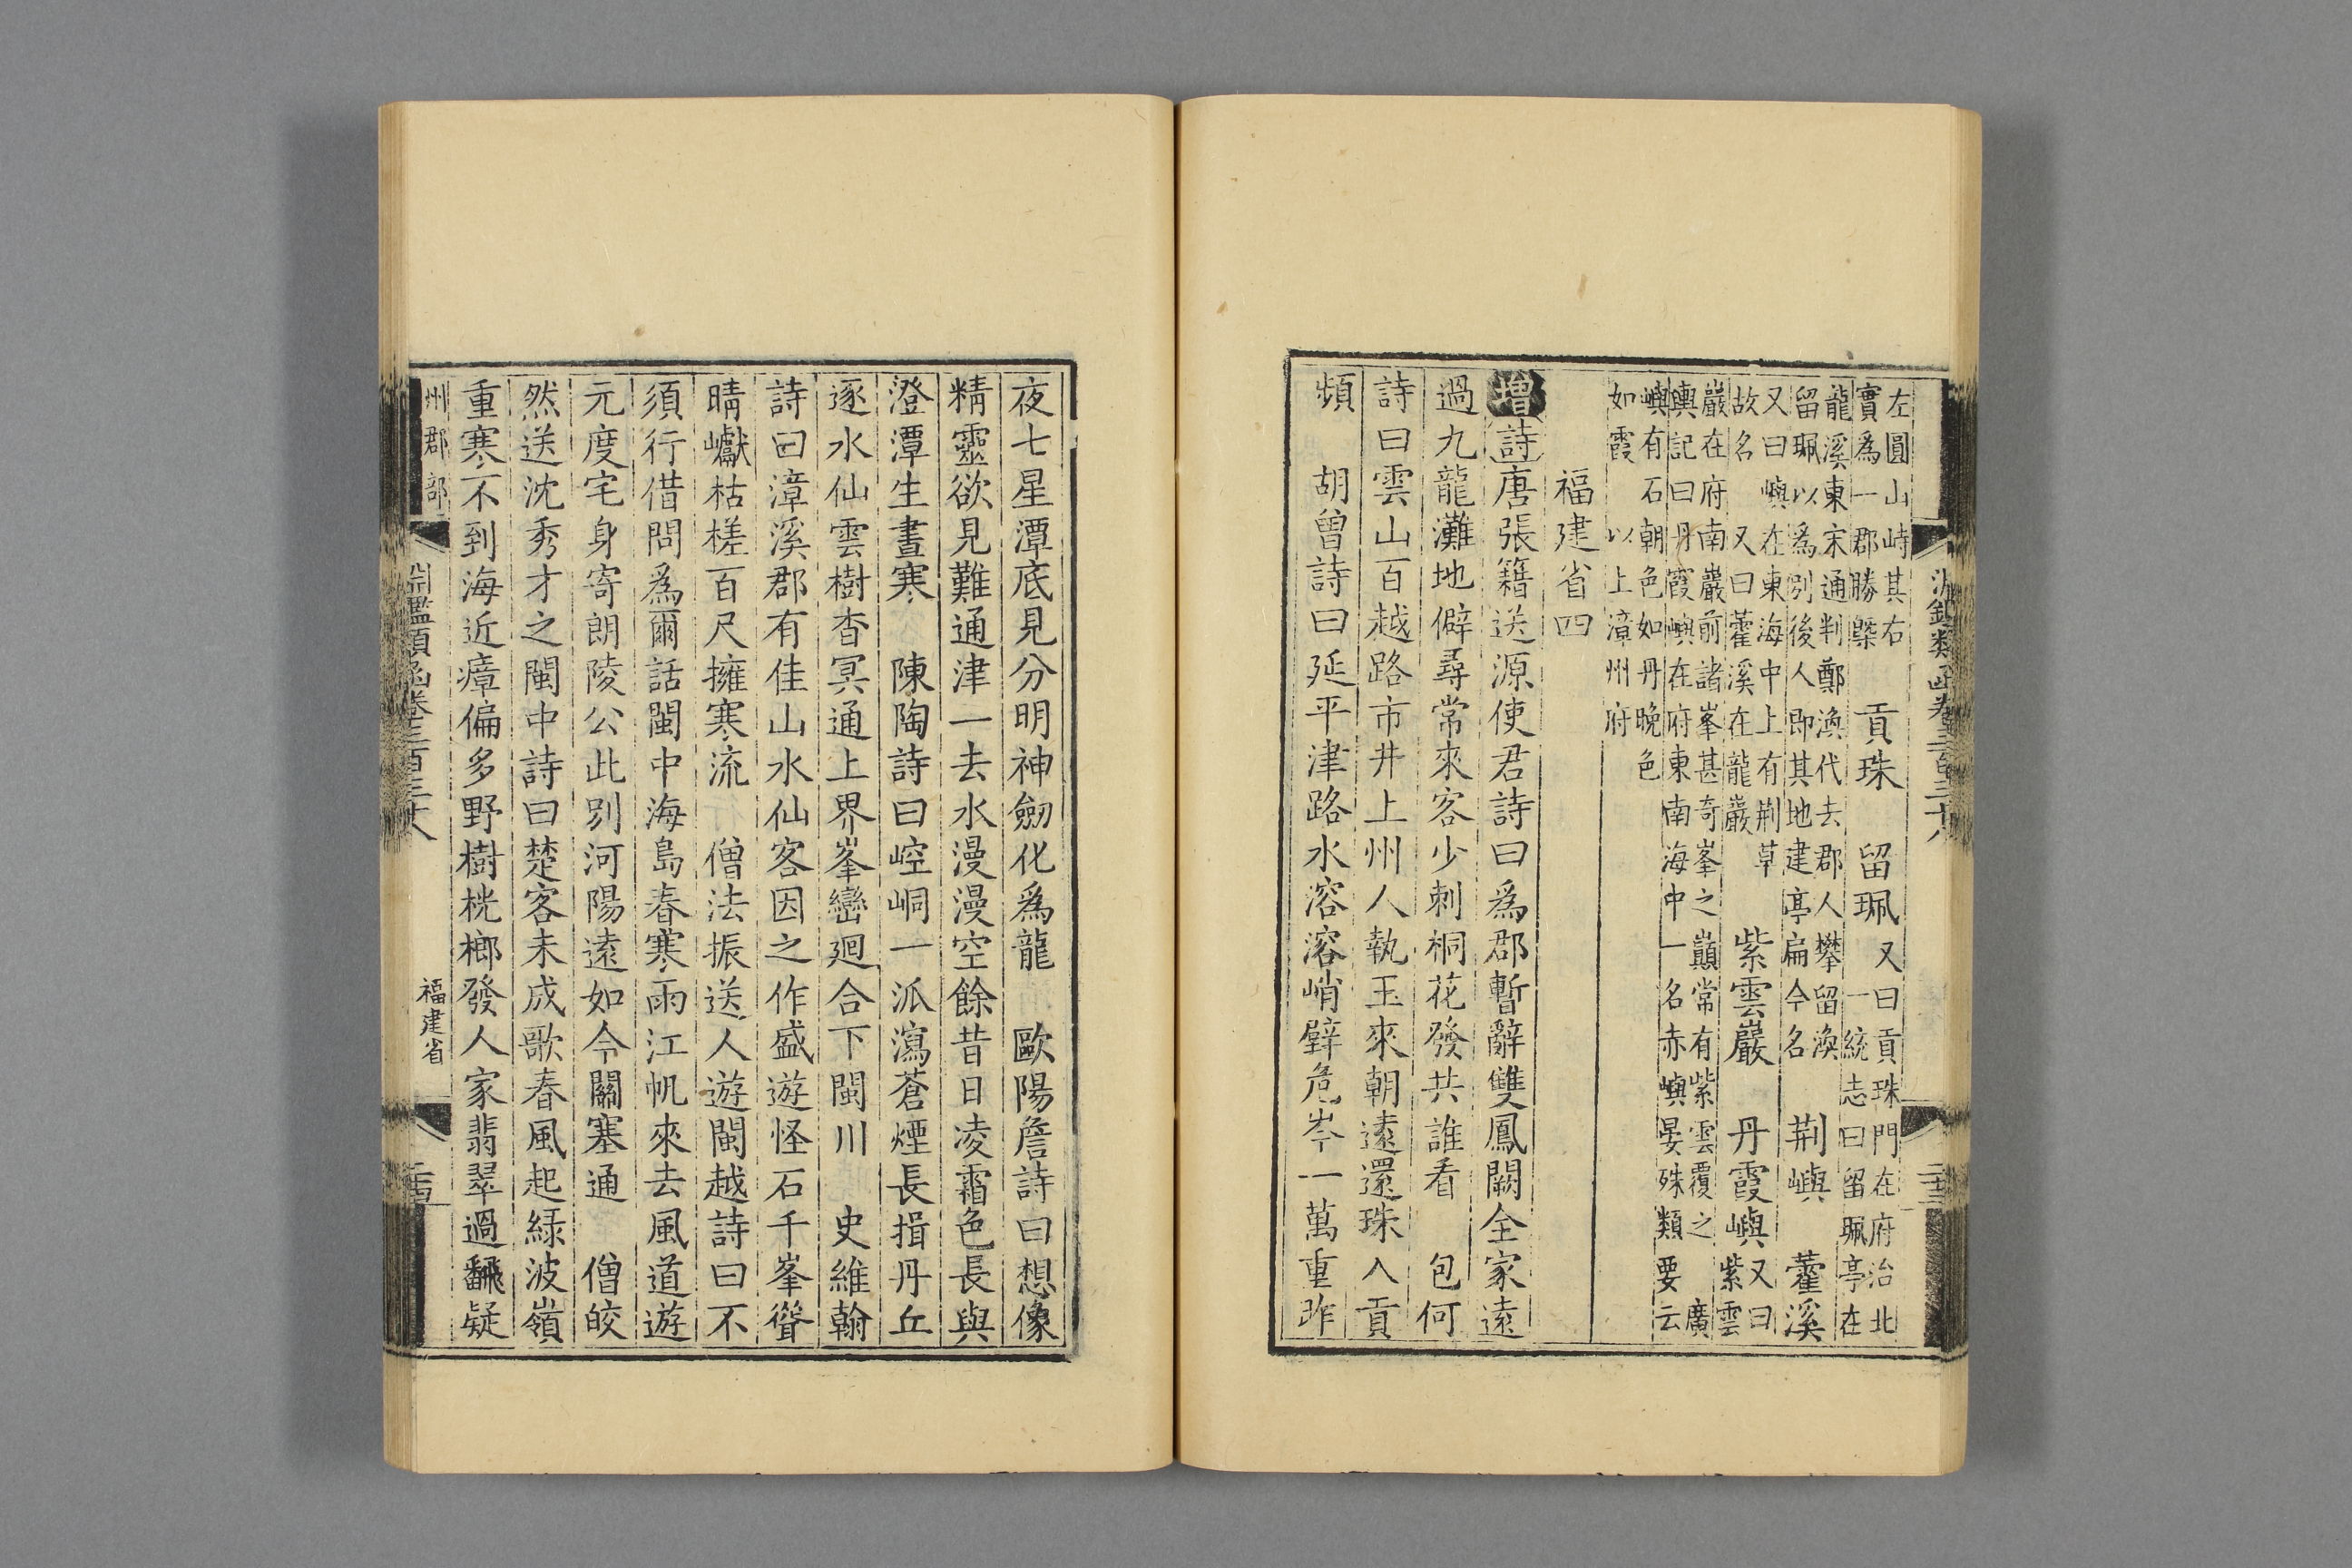 淵鑑類函卷三百三十八 二十三
左圓山峙其右
實爲一郡勝槩
貢珠 留珮
又曰貢珠門在府治北
一統志曰留珮亭在
龍溪東宋通判鄭渙代去郡人攀留渙
留珮以爲別後人即其地建亭扁今名
荆嶼 藿溪
又曰嶼在東海中上有荆草
故名 又曰藿溪在龍巖
紫雲巖 丹霞嶼
又曰
紫雲
巖在府南巖前諸峯甚奇峯之巔常有紫雲覆之 廣
輿記曰丹霞嶼在府東南海中一名赤嶼晏殊類要云
嶼有石朝色如丹晚色
如霞 以上漳州府
福建省四
增詩唐張籍送源使君詩曰爲郡暫辭雙鳳闕全家遠
過九龍灘地僻尋常來客少刺桐花發共誰看 包何
詩曰雲山百越路市井上州人執玉來朝遠還珠入貢
頻 胡曾詩曰延平津路水溶溶峭壁危岑一萬重昨
夜七星潭底見分明神劒化爲龍 歐陽詹詩曰想像
精靈欲見難通津一去水漫漫空餘昔日凌霜色長與
澄潭生晝寒 陳陶詩曰崆峒一派瀉蒼煙長揖丹丘
逐水仙雲樹杳冥通上界峯巒廻合下閩川 史維翰
詩曰漳溪郡有佳山水仙客因之作盛遊怪石千峯聳
晴巘枯槎百尺擁寒流 僧法振送人遊閩越詩曰不
須行借問爲爾話閩中海島春寒雨江帆來去風道遊
元度宅身寄朗陵公此別河陽遠如今關塞通 僧皎
然送沈秀才之閩中詩曰楚客未成歌春風起綠波嶺
重寒不到海近瘴偏多野樹桄榔發人家翡翠過翻疑
州郡部 淵鑑類函卷三百三十八 福建省